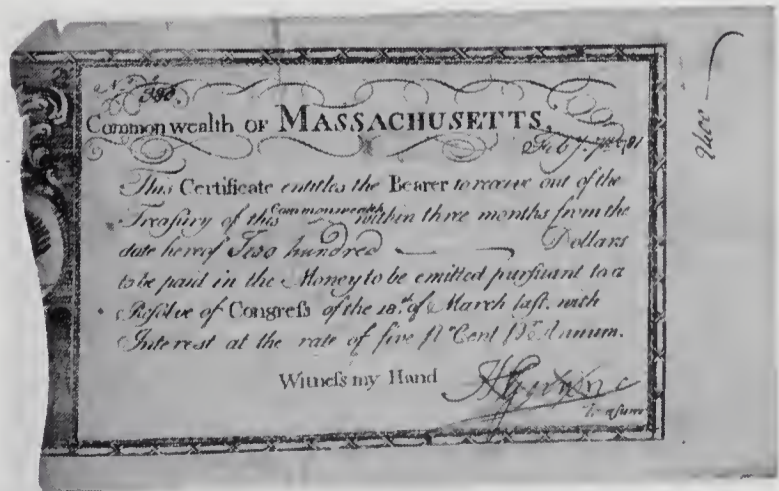 No. 392
Commonwealth of MASSACHUSETTS,
Feby. 7th 1781
This Certificate entitles the Bearer to receive out of the
Treaſury of this Commonwealth within three months from the
date hereof Two hundred Dollars
to be paid in the Money to be emitted purſuant to a
Reſolve of Congreſs of the 18th. of March laſt, with
Intereſt at the rate of five Pr Cent Pr Annum.
Witneſs my Hand
Treaſurer